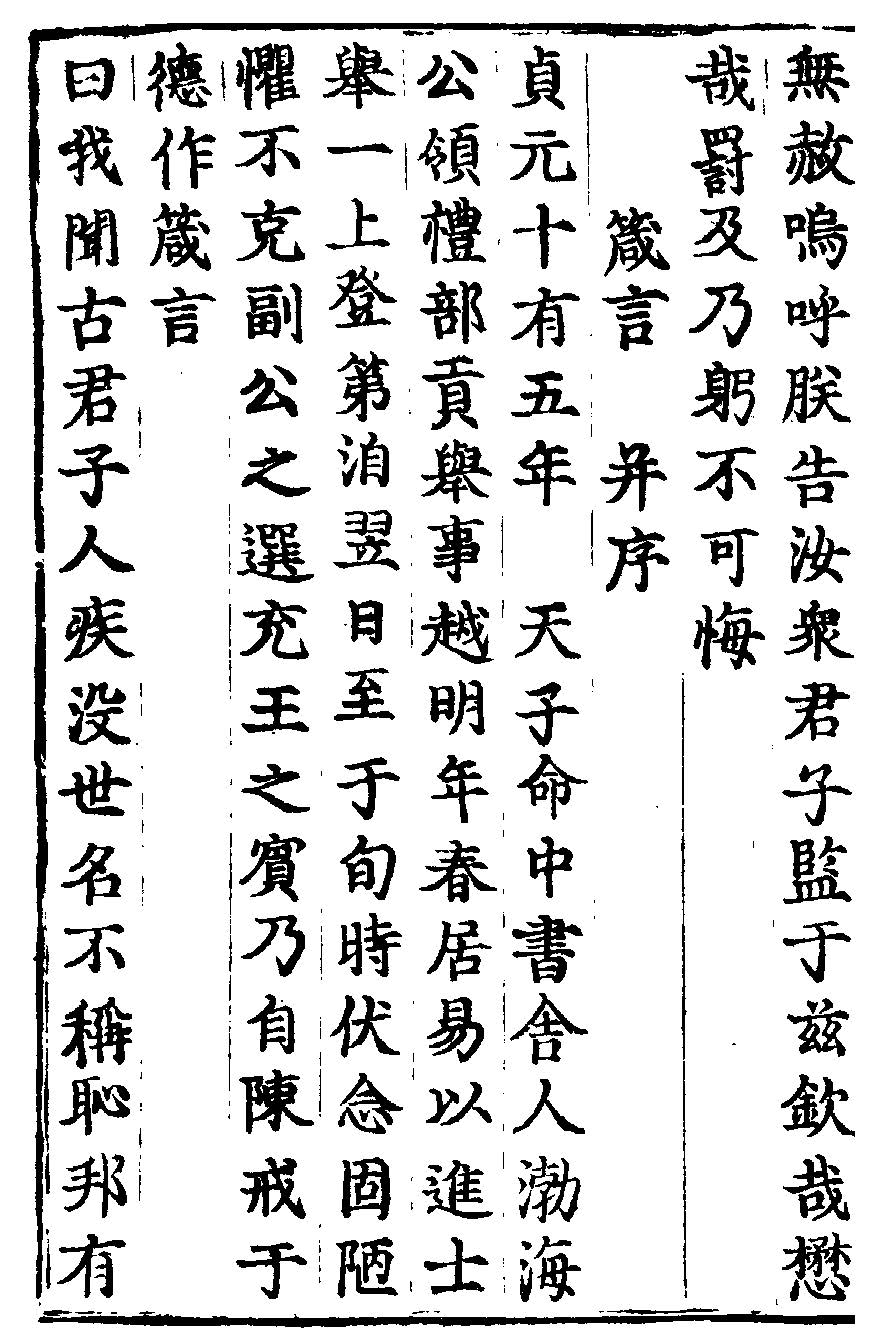 無赦嗚呼朕告汝衆君子監于兹欽哉懋
哉罰及乃躬不可悔
箴言 并序
貞元十有五年 天子命中書舍人渤海
公領禮部貢舉事越明年春居易以進士
舉一上登第洎翌日至于旬時伏念固陋
懼不克副公之選充王之賓乃自陳戒于
德作箴言
曰我聞古君子人疾没世名不稱恥邦有